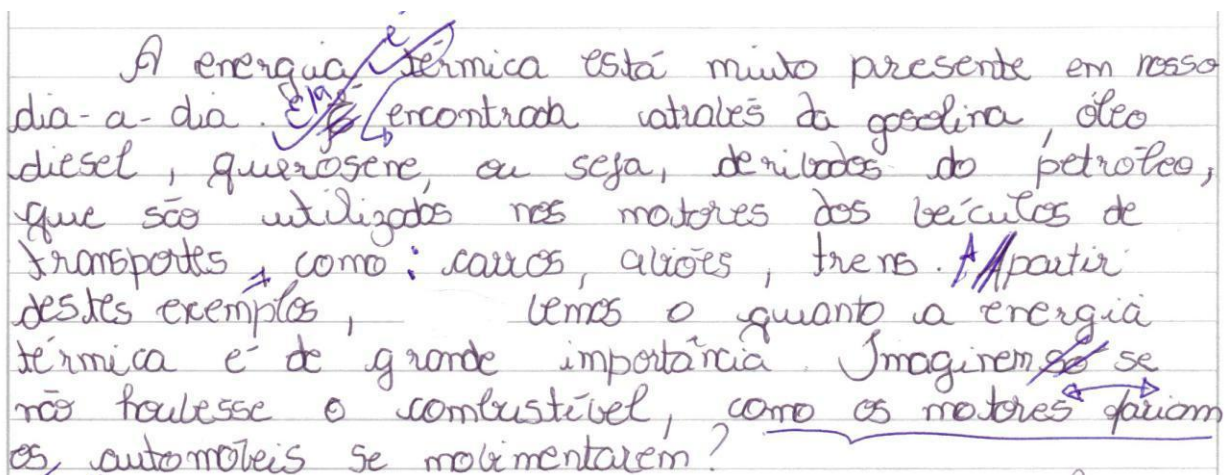 A energia térmica está muito presente em nosso
dia-a-dia. Ela é encontrada através da gasolina, óleo
diesel, querosene, ou seja, derivados do petróleo,
que são utilizados nos motores dos veículos de
transportes, como: carros, aviões, trens. A partir
destes exemplos, vemos o quanto a energia
térmica é de grande importância. Imaginem se
não houvesse o combustível, como os motores fariam
os automóveis se movimentarem?